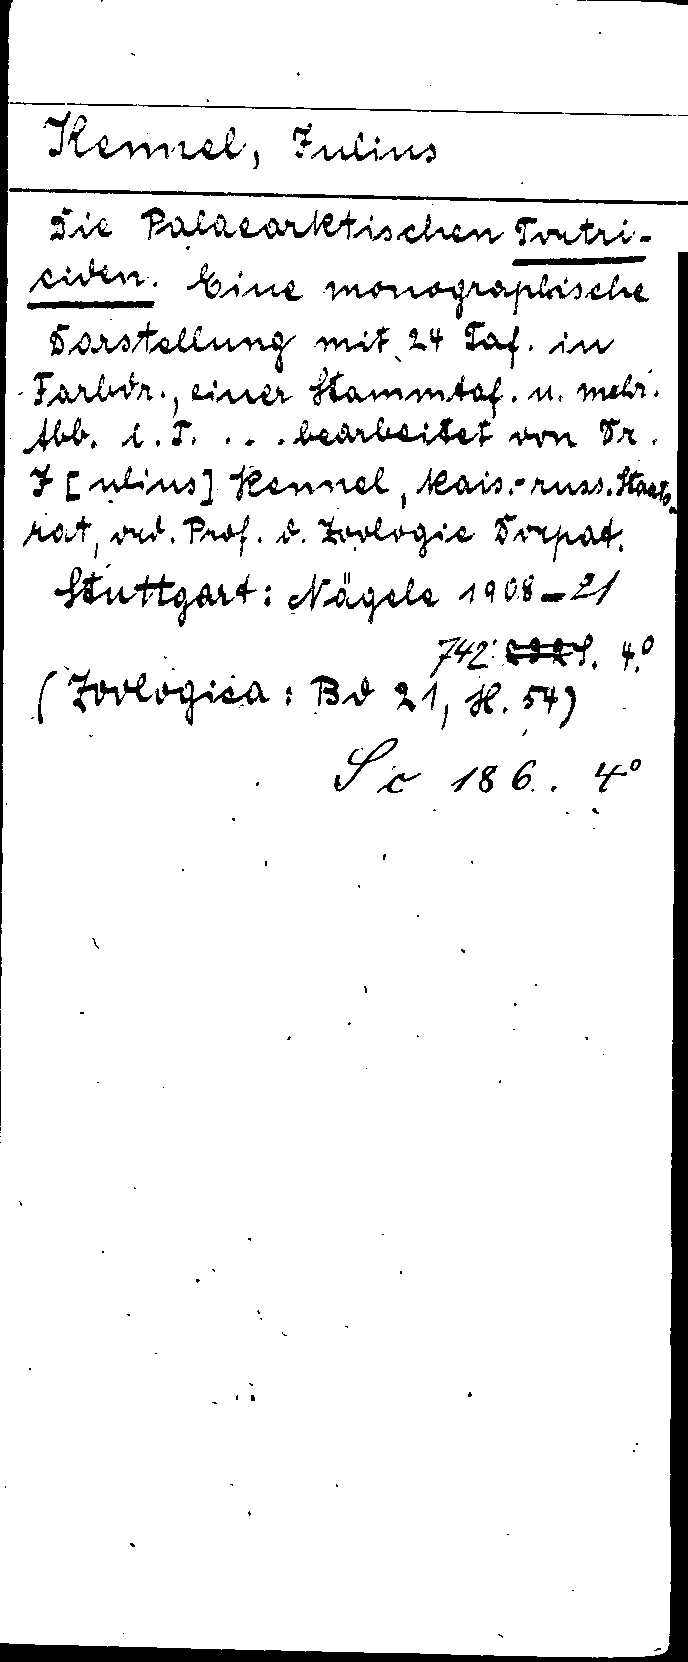 Kennel, Julius
Die Palaearktischen Tortri-
ciden. Eine monographische
Darstellung mit 24 Taf. in
Farbdr., einer Stammtaf. u. mehr.
Abb. i. T. . . . bearbeitet von Dr.
J[ulius] Kennel, Kais.-russ. Staats-
rat, ord. Prof. d. Zoologie Dorpat.
Stuttgart: Nägele 1908-21
742 S. 4°
(Zoologica: Bd 21, H. 54)
Sc 186. 4°